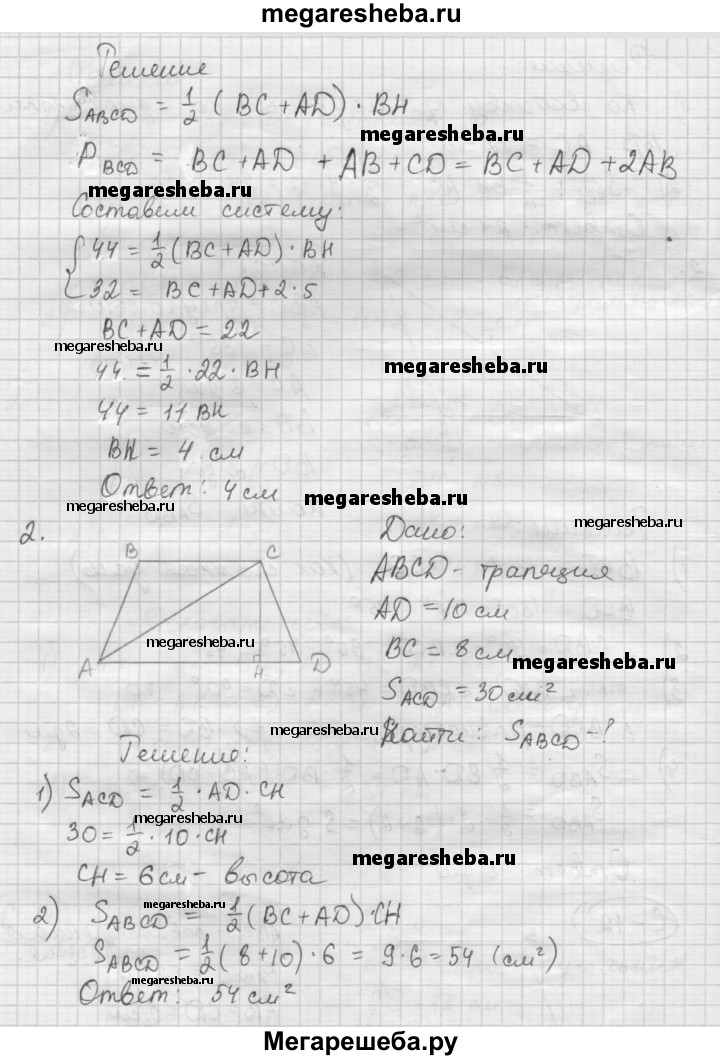 megaresheba.ru
Решение
S_ABCD = 1/2 (BC + AD) · BH
megaresheba.ru
P_BCD = BC + AD + AB + CD = BC + AD + 2AB
megaresheba.ru
Составим систему:
{ 44 = 1/2 (BC + AD) · BH
32 = BC + AD + 2 · 5
BC + AD = 22
megaresheba.ru
44 = 1/2 · 22 · BH
megaresheba.ru
44 = 11 BH
BH = 4 см
Ответ: 4 см
megaresheba.ru
megaresheba.ru
megaresheba.ru
2.
B C
A H D
megaresheba.ru
Дано:
ABCD - трапеция
AD = 10 см
BC = 8 см
megaresheba.ru
S_ACD = 30 см²
megaresheba.ru
Найти: S_ABCD - ?
Решение:
1) S_ACD = 1/2 · AD · CH
megaresheba.ru
30 = 1/2 · 10 · CH
megaresheba.ru
CH = 6 см - высота
megaresheba.ru
2) S_ABCD = 1/2 (BC + AD) · CH
S_ABCD = 1/2 (8 + 10) · 6 = 9 · 6 = 54 (см²)
megaresheba.ru
Ответ: 54 см²
Мегарешеба.ру